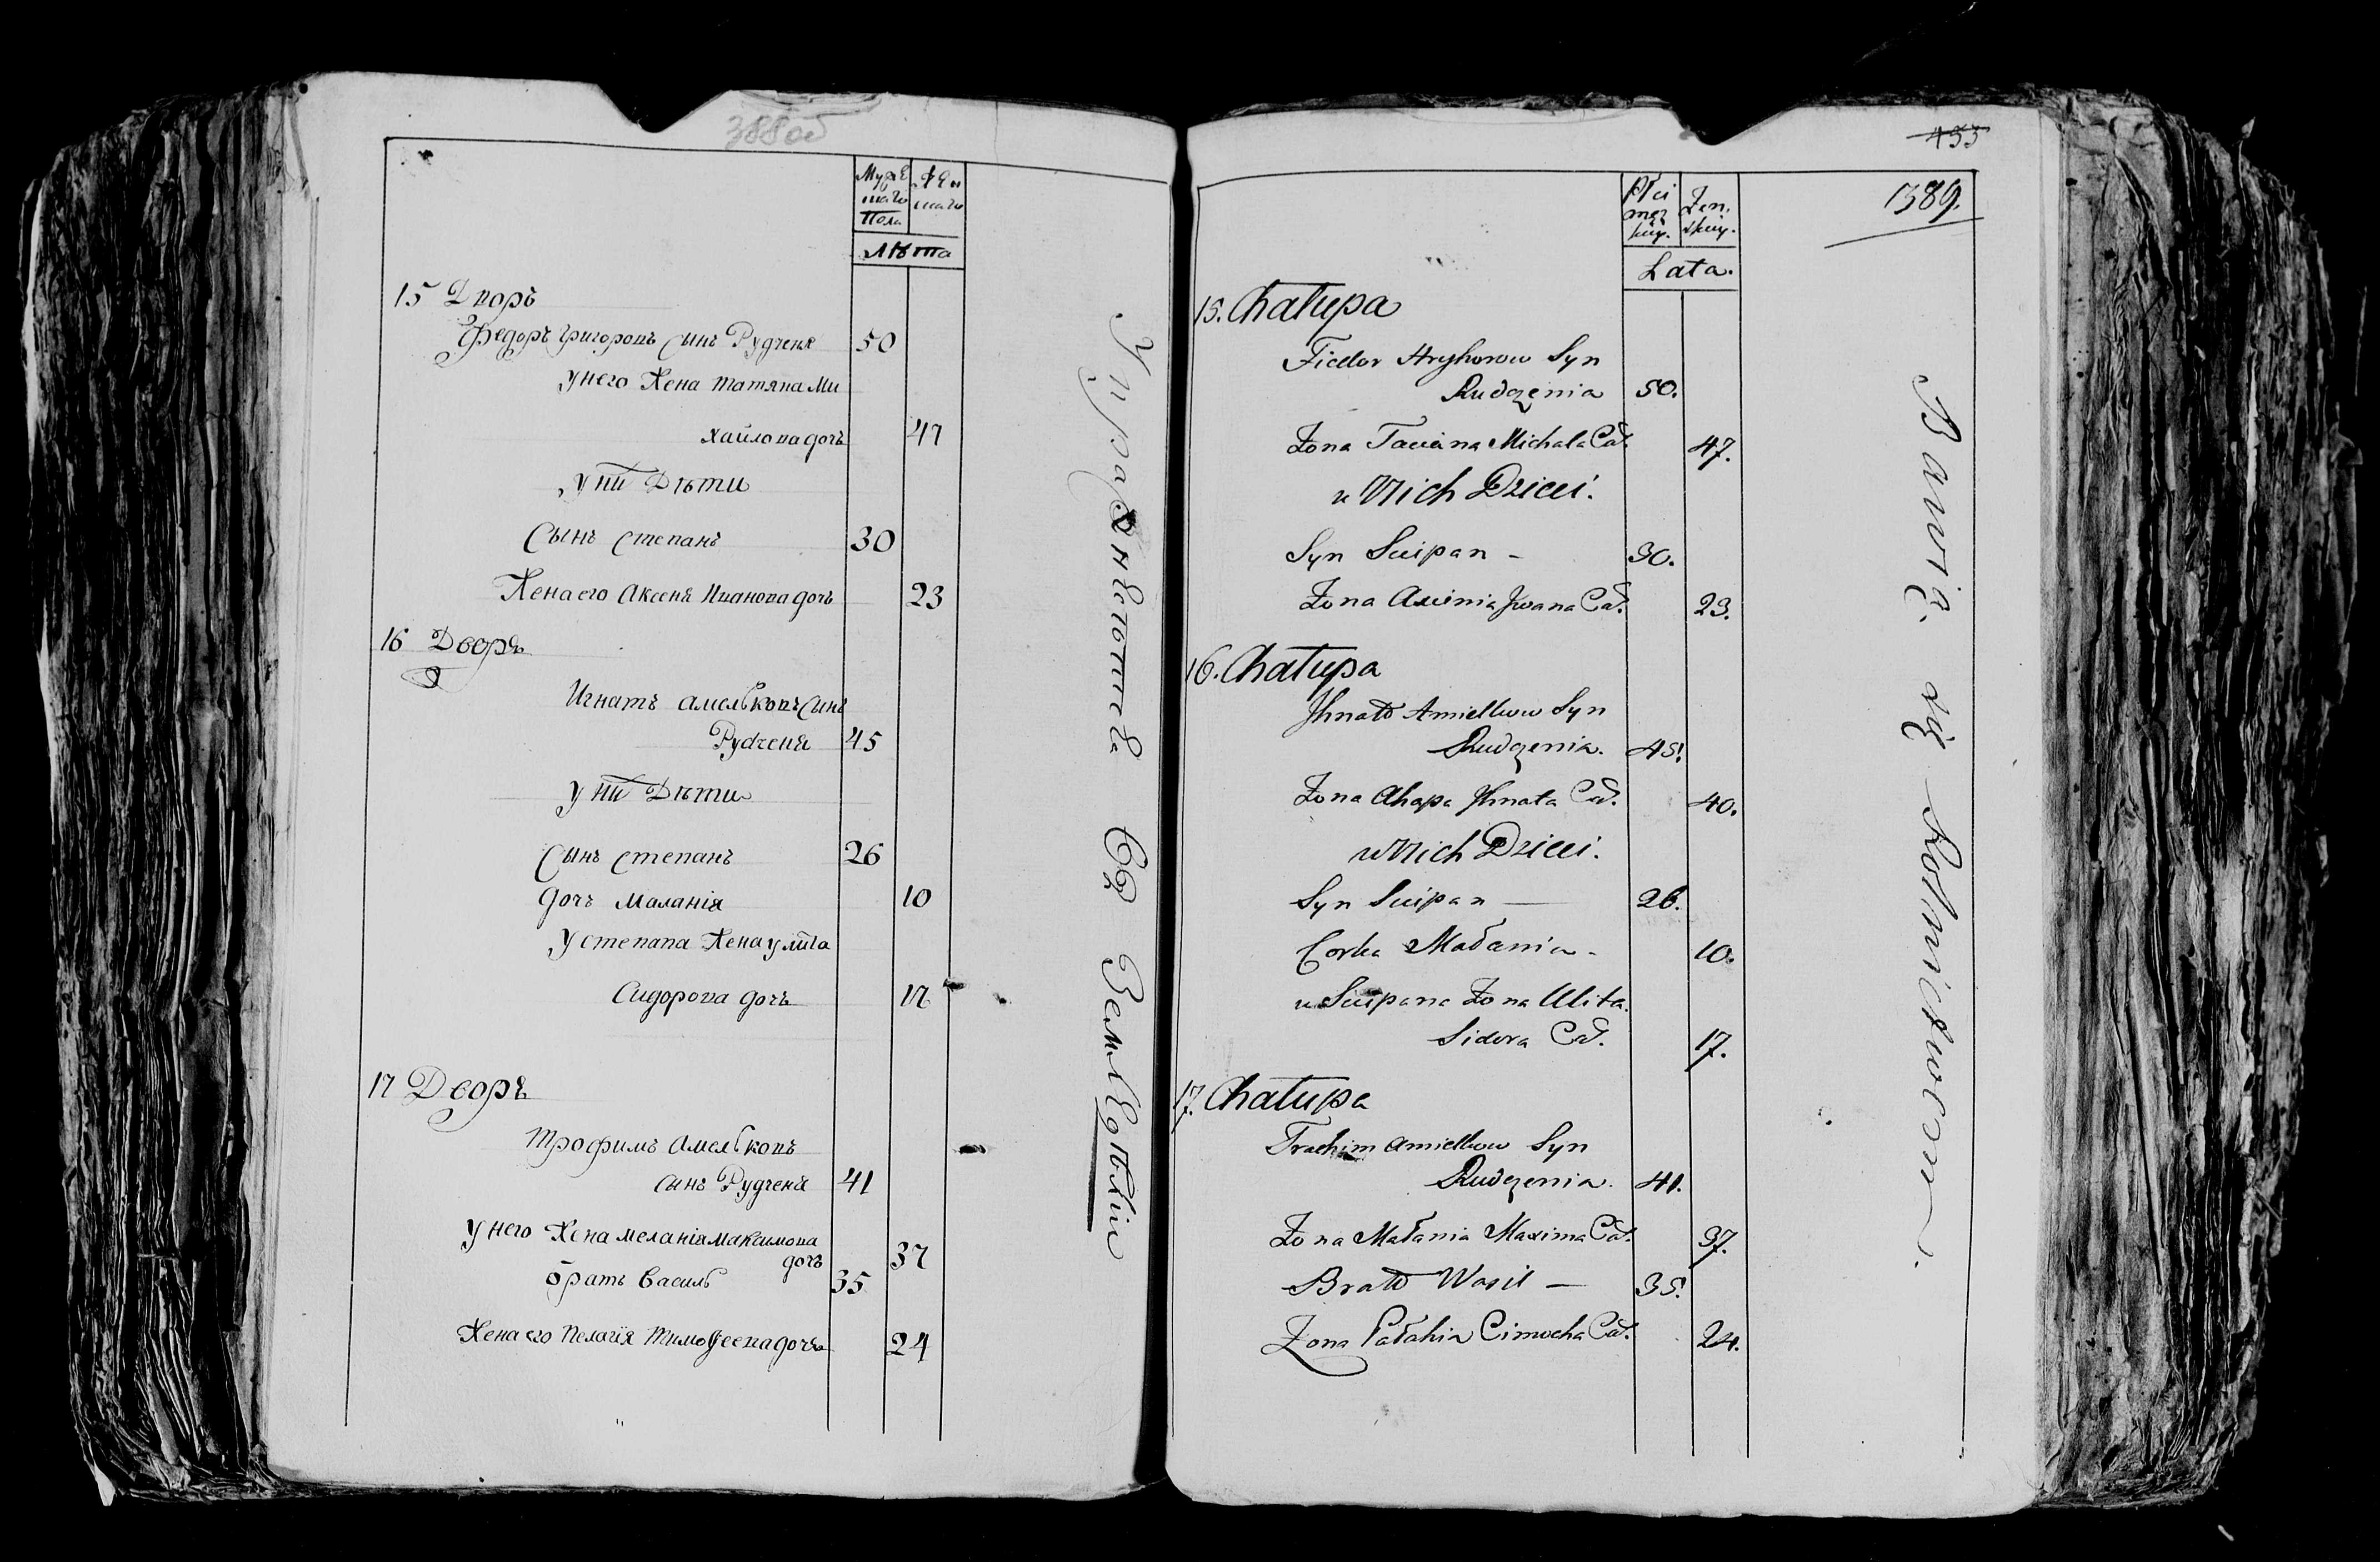 388об
Мужескаго Пола
Женскаго
Лѣта
15 Дворъ
Федоръ Григоровъ сынъ Рудченя 50
у него Жена татяна Ми
хайлова дочъ 47
у ни Дѣти
Сынъ степанъ 30
Жена его Аксеня Иванова дочъ 23
16 Дворъ
Игнатъ амельковъ сынъ
Рудченя 45
у ни Дѣти
Сынъ степанъ 26
дочъ маланія 10
у степана Жена улита
Сидорова дочъ 17
17 Дворъ
трофимъ амельковъ
сынъ Рудченя 41
у него Жена меланія максимова
дочъ 37
братъ василь 35
Жена его пелагія тимофеева дочъ 24
Упражнѣются въ Землѣделіи
453
389.
Płci męzkiey.
Żenskiey.
Lata.
15. Chałupa
Fiedor Hryhorow Syn
Rudczenia 50.
Żona Taciana Michała Cór. 47.
u Nich Dzieci.
Syn Sciepan - 30.
Żona Axienia Jwana Cór. 23.
16. Chałupa
Jhnatt Amielkow Syn
Rudczenia. 45.
Żona Ahapa Jhnata Cór. 40.
u Nich Dzieci.
Syn Sciepan — 26.
Corka Małania - 10.
u Sciepana Żona Ulita.
Sidora Cór. 17.
17. Chałupa
Trachim amielkow Syn
Rudczenia. 41.
Żona Małania Maxima Cór. 37.
Bratt Wasil — 35.
Żona Pałahia Cimocha Cór. 24.
Bawią. się Rolnictwem.